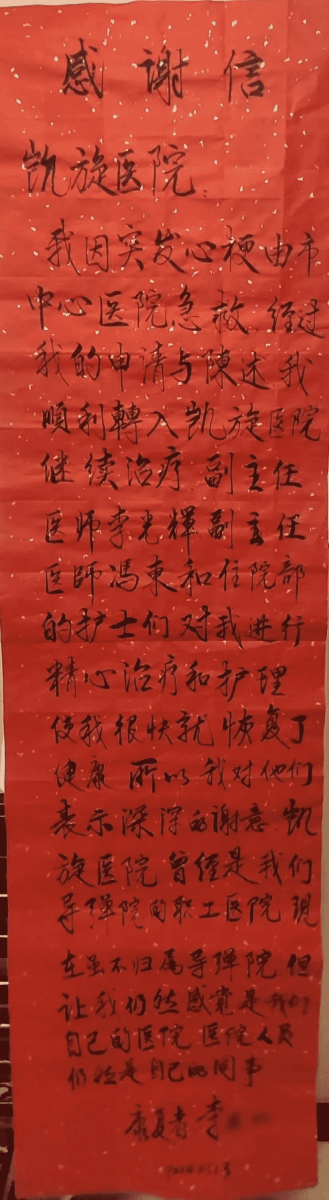 感谢信
凯旋医院：
我因突发心梗由市
中心医院急救 经过
我的申请与陳述 我
順利轉入凯旋医院
继续治疗 副主任
医师李光輝副主任
医師馮東和住院部
的护士们对我进行
精心治疗和护理
使我很快就恢复了
健康 所以 我对他们
表示深深的谢意 凯
旋医院 曾经是我们
导弹院的职工医院 现
在虽不归属导弹院 但
让我仍然感觉是我们
自己的医院 医院人员
仍然是自己的同事
康复者 李